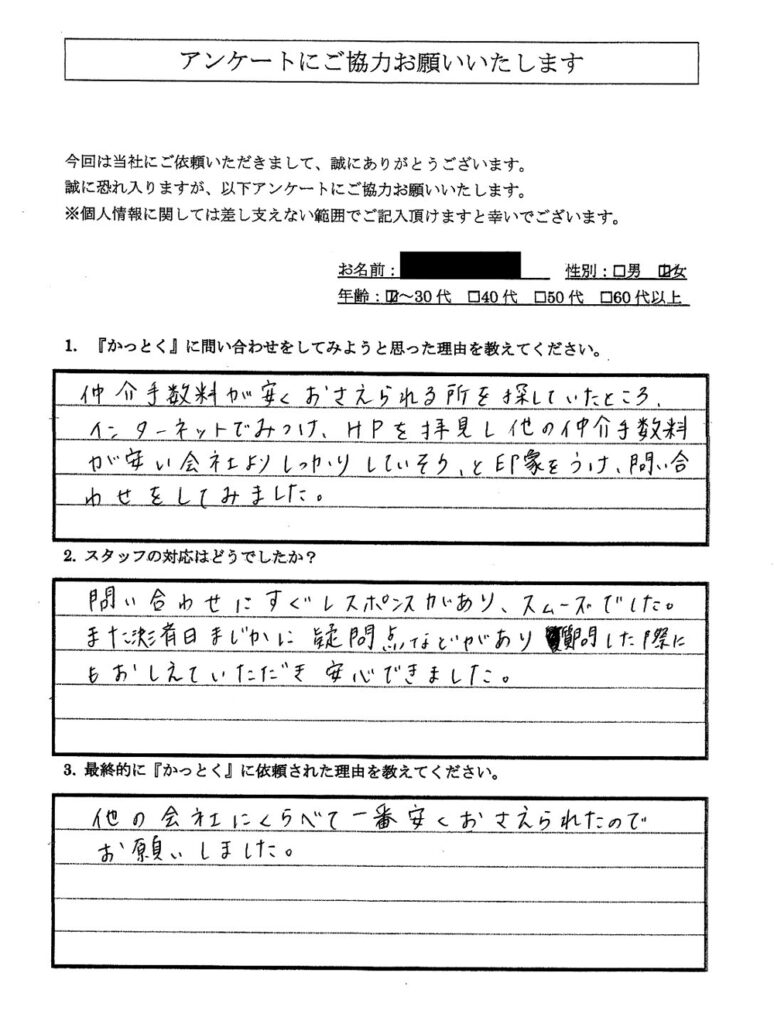 アンケートにご協力お願いいたします
今回は当社にご依頼いただきまして、誠にありがとうございます。
誠に恐れ入りますが、以下アンケートにご協力お願いいたします。
※個人情報に関しては差し支えない範囲でご記入頂けますと幸いでございます。
お名前： 性別：□男 ☑女
年齢：☑～30代 □40代 □50代 □60代以上
1. 『かっとく』に問い合わせをしてみようと思った理由を教えてください。
仲介手数料が安くおさえられる所を探していたところ、
インターネットでみつけ、HPを拝見し他の仲介手数料
が安い会社よりしっかりしていそう、と印象をうけ、問い合
わせをしてみました。
2. スタッフの対応はどうでしたか？
問い合わせにすぐレスポンスがあり、スムーズでした。
また日まじかに疑問点などがあり質問した際に
もおしえていただき安心できました。
3. 最終的に『かっとく』に依頼された理由を教えてください。
他の会社にくらべて一番安くおさえられたので
お願いしました。